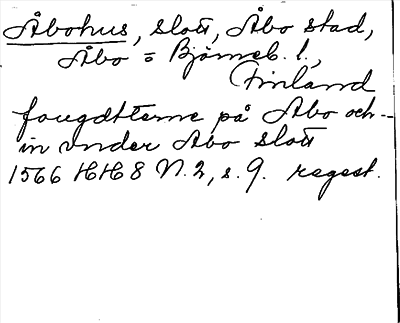 Åbohus, slott, Åbo stad,
Åbo = Björneb. l.,
Finland
fougdtterne på Åbo och
in vnder Åbo slott
1566 HH 8 N. 2, s. 9. regest.